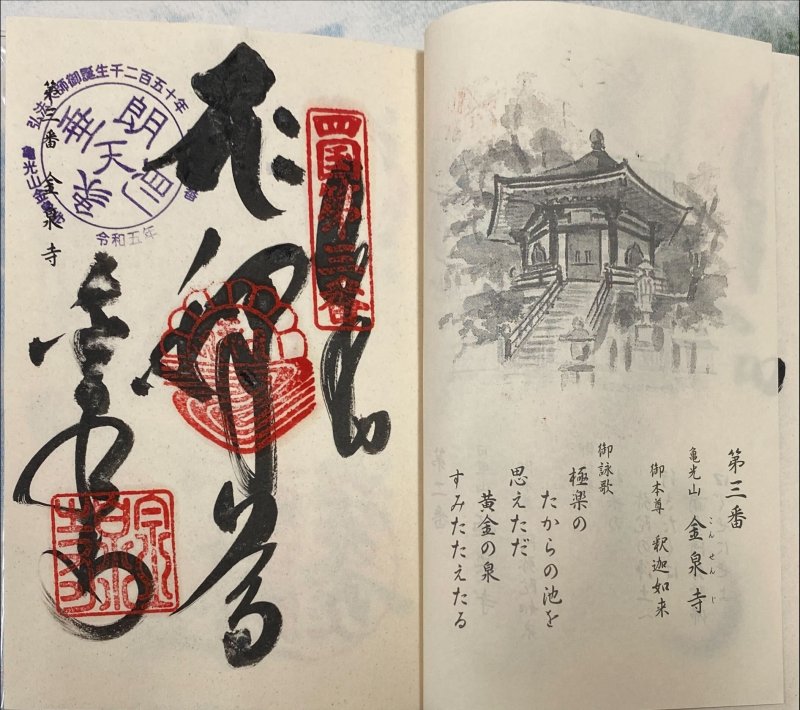 第三番
亀光山 金泉寺
こんせんじ
御本尊 釈迦如来
御詠歌
極楽の
たからの池を
思えただ
黄金の泉
すみたたえたる
四国第三番
弘法大師御誕生千二百五十年
令和五年
亀光山金泉寺
第三番 金泉寺